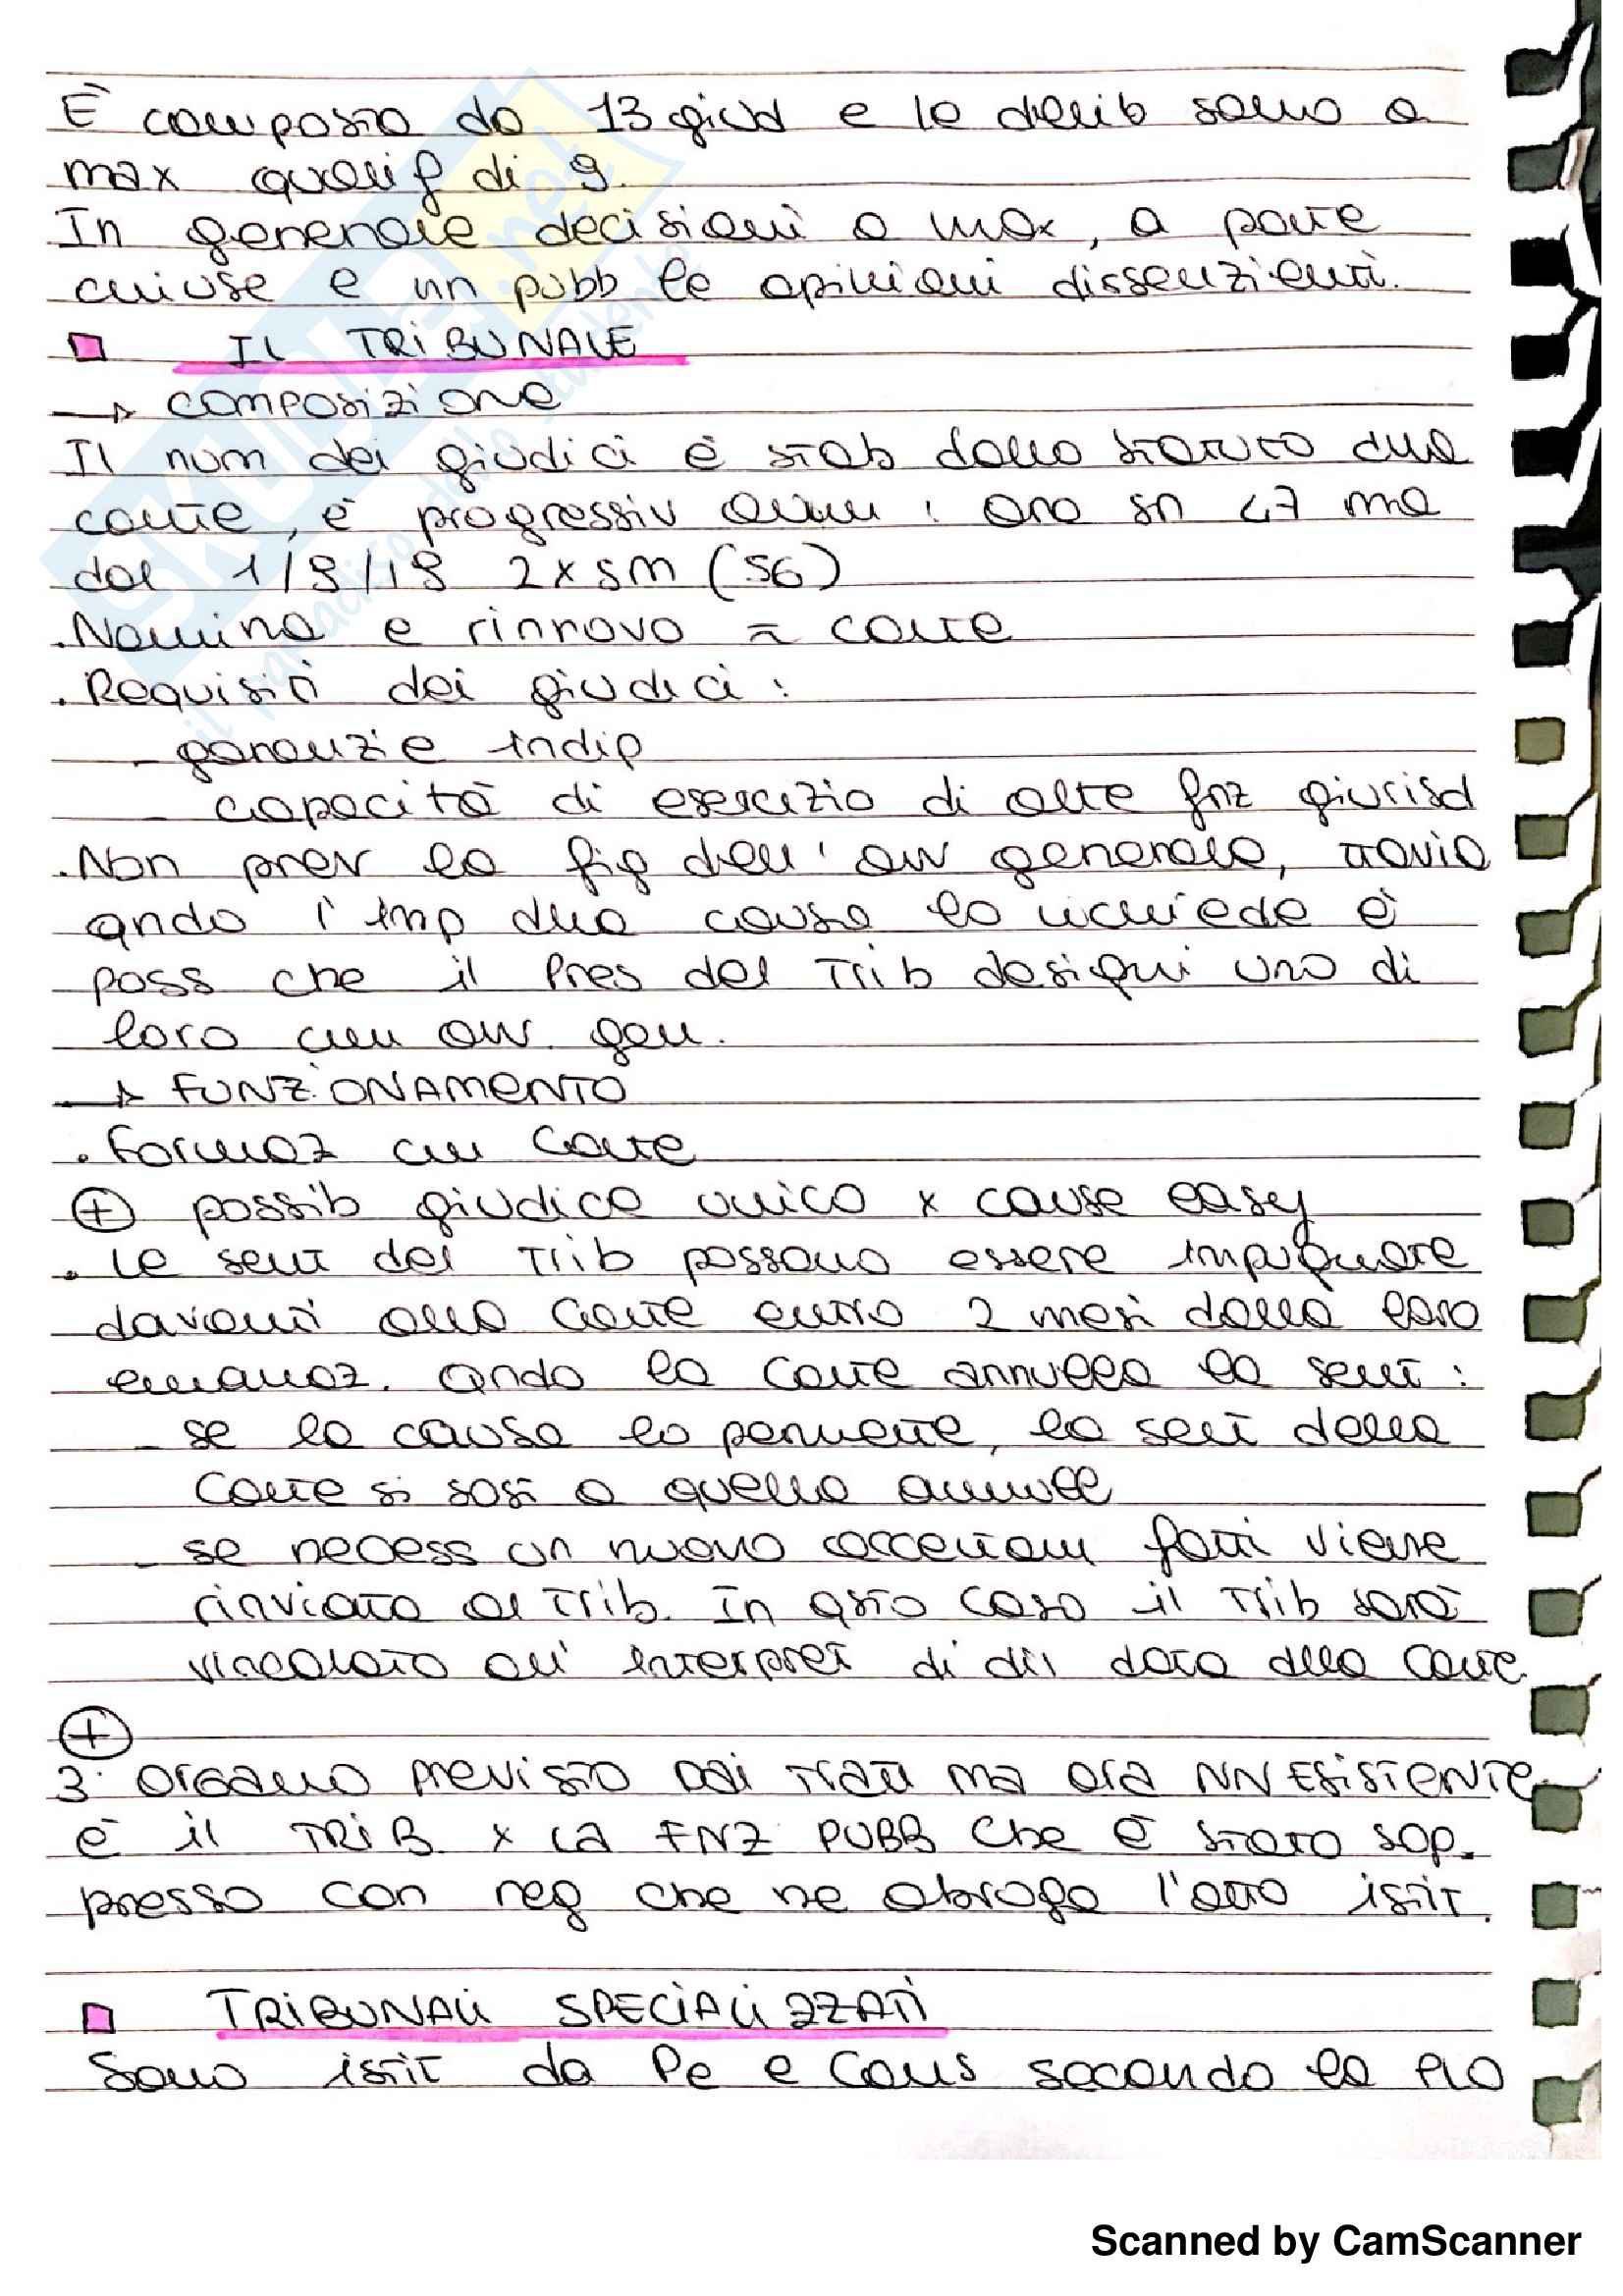 È composta da 13 giud e le delib sono a
max qualif di 9.
In generale decisioni a max, a porte
chiuse e nn pubb le opinioni dissenzienti.
IL TRIBUNALE
→ COMPOSIZIONE
Il num dei giudici è stab dallo statuto dlla
corte, è progressiv aum : ora sn 47 ma
dal 1/9/19 2xSM (56)
.Nomina e rinnovo = corte
.Requisiti dei giudici :
- garanzie indip
- capacità di esercizio di alte fnz giurisd
.Non prev la fig dell'avv generale, travia
qndo l'imp dlla causa lo richiede è
poss che il Pres del Trib designi uno di
loro cm avv. gen.
→ FUNZIONAMENTO
. Formaz cm Corte
+ possib giudice unico x cause easy
. Le sent del Trib possono essere impugnate
davanti alla Corte entro 2 mesi dalla loro
emanaz. Qndo la Corte annulla la sent :
- se la causa lo permette, la sent della
Corte si sosti a quella annull
- se necess un nuovo accertam fatti viene
rinviata al Trib. In qsto caso il Trib sarà
vincolato all' interpret di dir data dlla Corte
+
3° organo previsto dai tratt ma ora NN ESISTENTE
è il TRIB x LA FNZ PUBB Che è stato sop.
presso con reg che ne abroga l'atto istit.
TRIBUNALI SPECIALIZZATI
Sono istit da Pe e Cons secondo la PLO
SKUOLA.net
il paradiso dello studente
Scanned by CamScanner